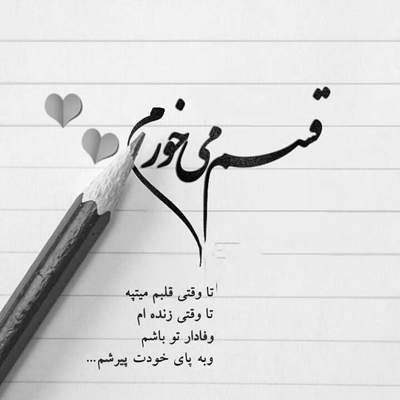 قسم می خورم
تا وقتی قلبم میتپه
تا وقتی زنده ام
وفادار تو باشم
وبه پای خودت پیرشم...